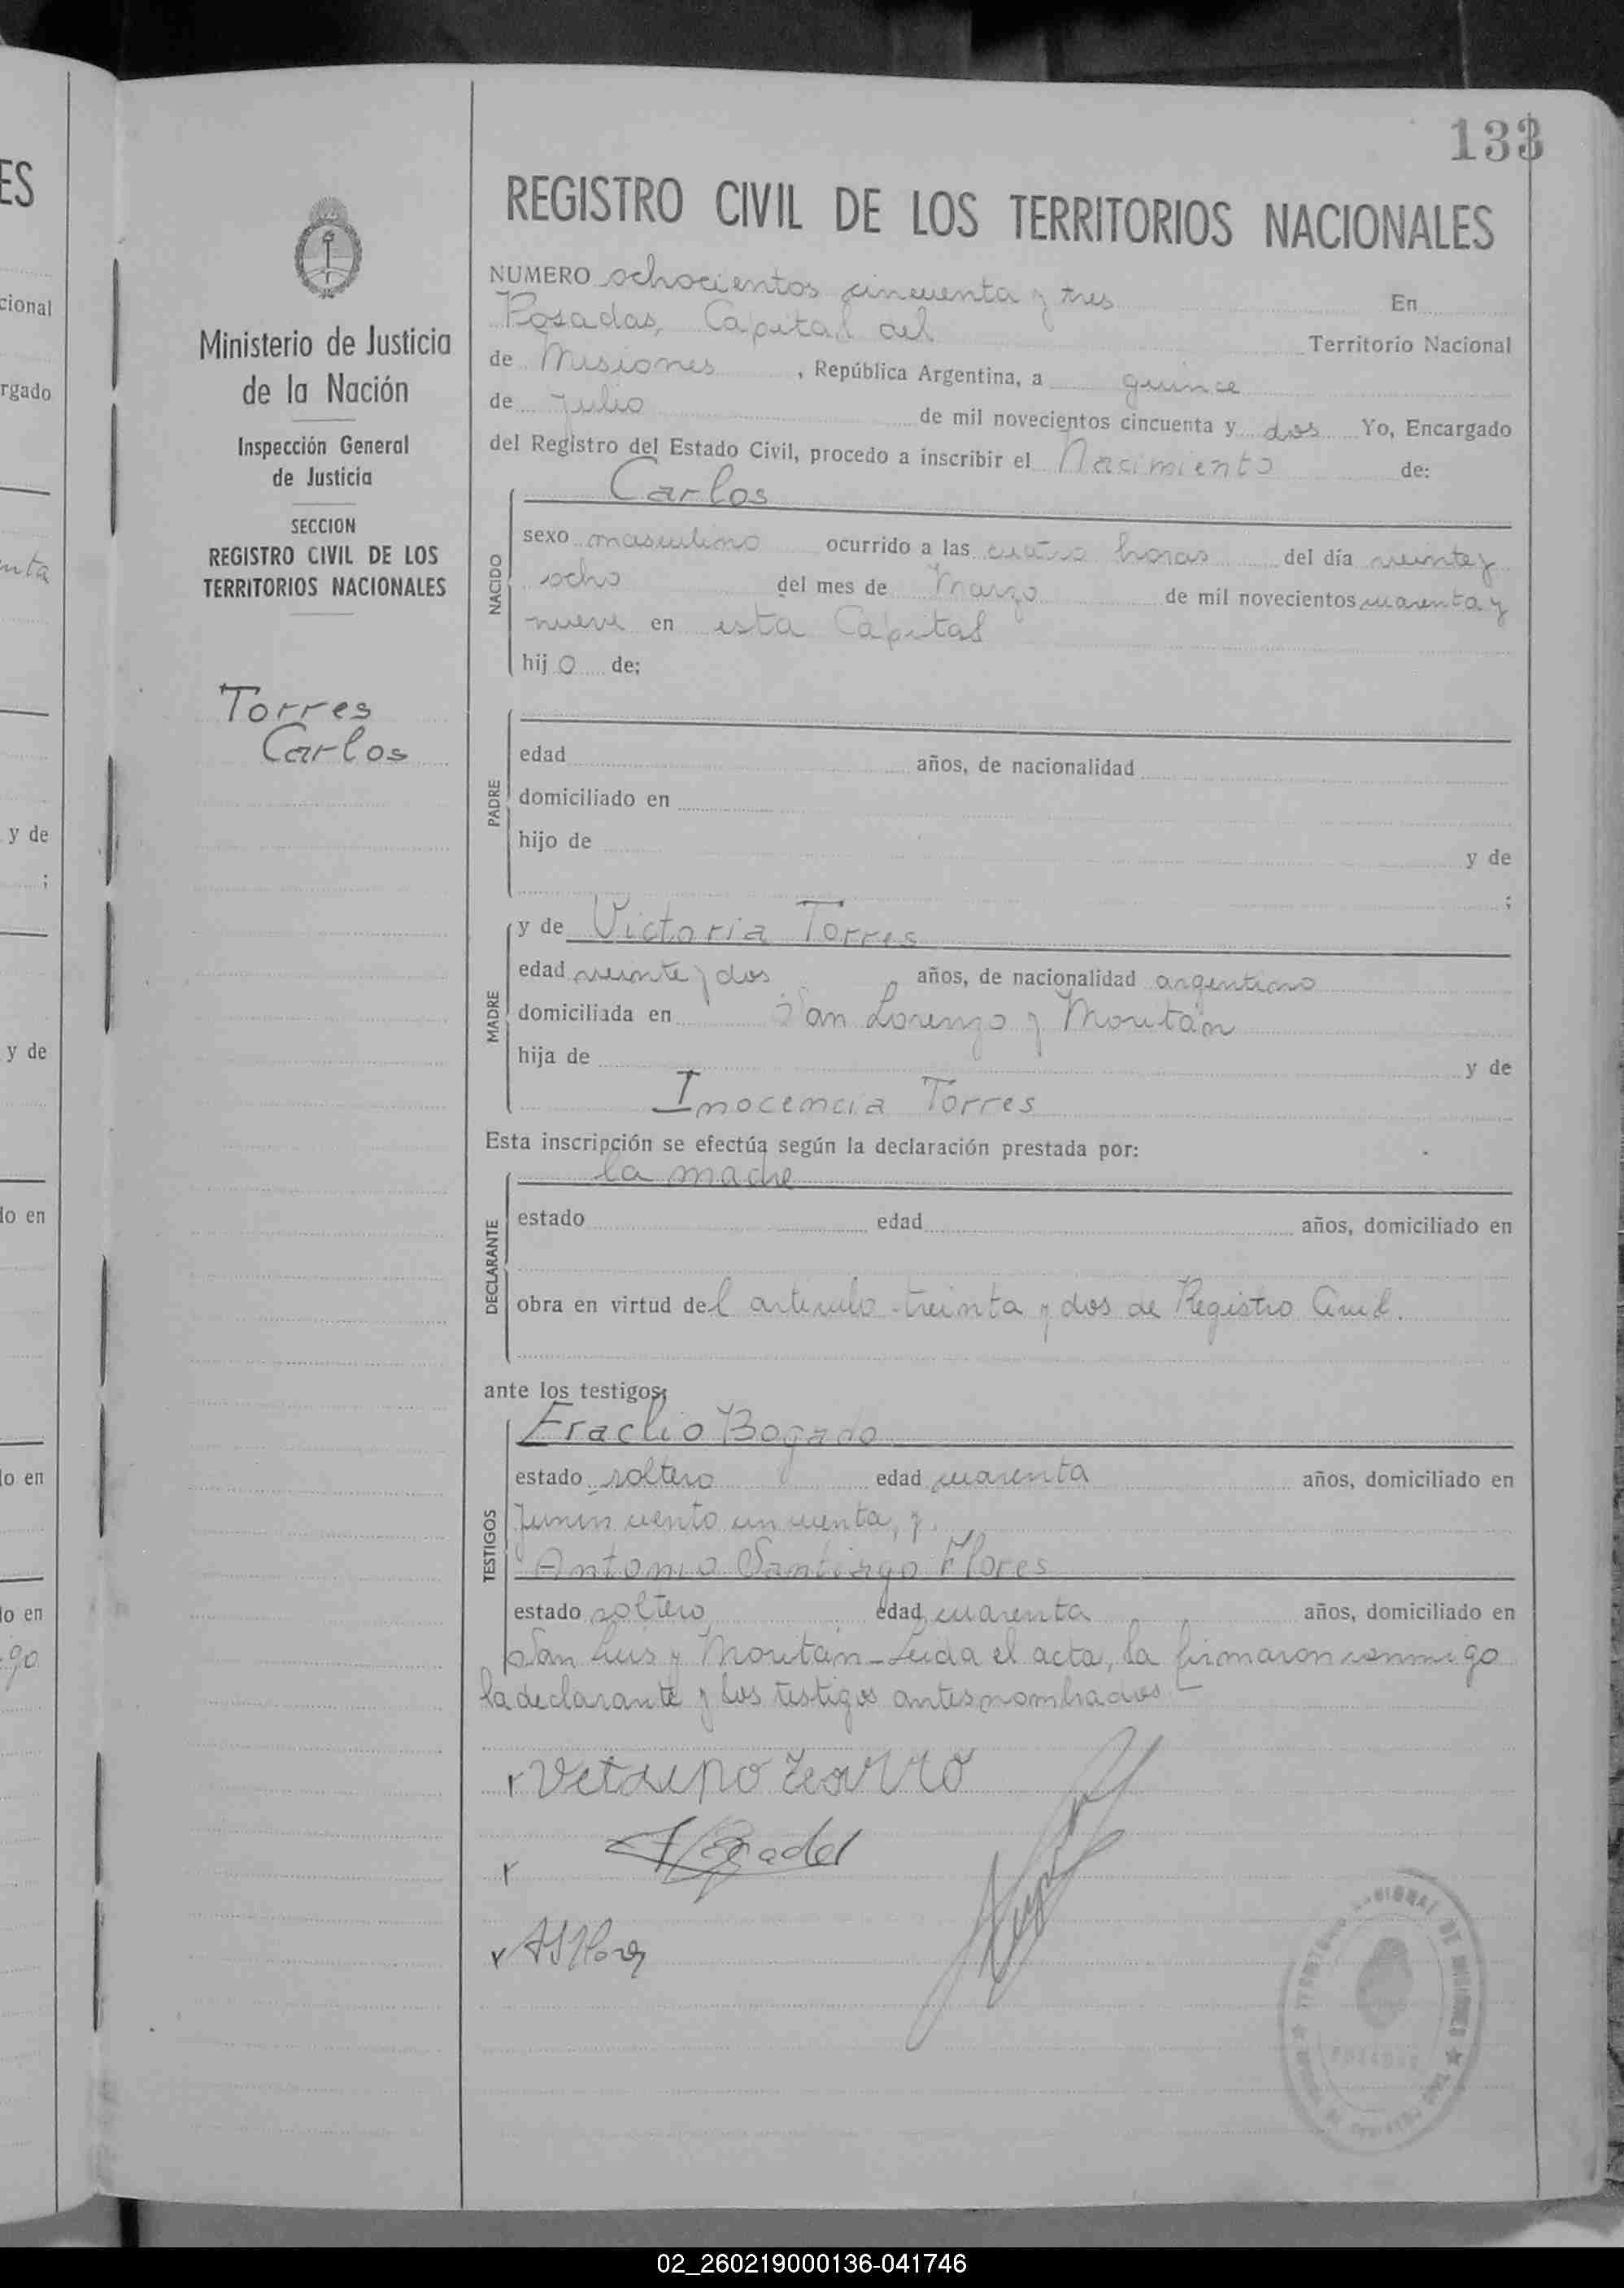 133
REGISTRO CIVIL DE LOS TERRITORIOS NACIONALES
Ministerio de Justicia
de la Nación
Inspección General
de Justicia
SECCION
REGISTRO CIVIL DE LOS
TERRITORIOS NACIONALES
Torres
Carlos
NUMERO ochocientos cincuenta y tres En
Posadas, Capital del Territorio Nacional
de Misiones, República Argentina, a quince
de julio de mil novecientos cincuenta y dos Yo, Encargado
del Registro del Estado Civil, procedo a inscribir el Nacimiento de:
NACIDO
Carlos
sexo masculino ocurrido a las cuatro horas del día veinte y
ocho del mes de Marzo de mil novecientos cuarenta y
nueve en esta Capital
hijo de;
PADRE
edad años, de nacionalidad
domiciliado en
hijo de y de
;
MADRE
y de Victoria Torres
edad veinte y dos años, de nacionalidad argentino
domiciliada en San Lorenzo y Moután
hija de y de
Inocencia Torres
Esta inscripción se efectúa según la declaración prestada por:
DECLARANTE
la madre
estado edad años, domiciliado en
obra en virtud del articulo treinta y dos de Registro Civil.
ante los testigos;
TESTIGOS
Eraclio Bogado
estado soltero edad cuarenta años, domiciliado en
Junin ciento cincuenta, y
Antonio Santiago Flores
estado soltero edad cuarenta años, domiciliado en
San Luis y Moután - Leida el acta, la firmaron conmigo
la declarante y los testigos antes nombrados
ASFlores
POSADAS
ES
cional
rgado
enta
y de
;
y de
do en
do en
do en
go
02_260219000136-041746